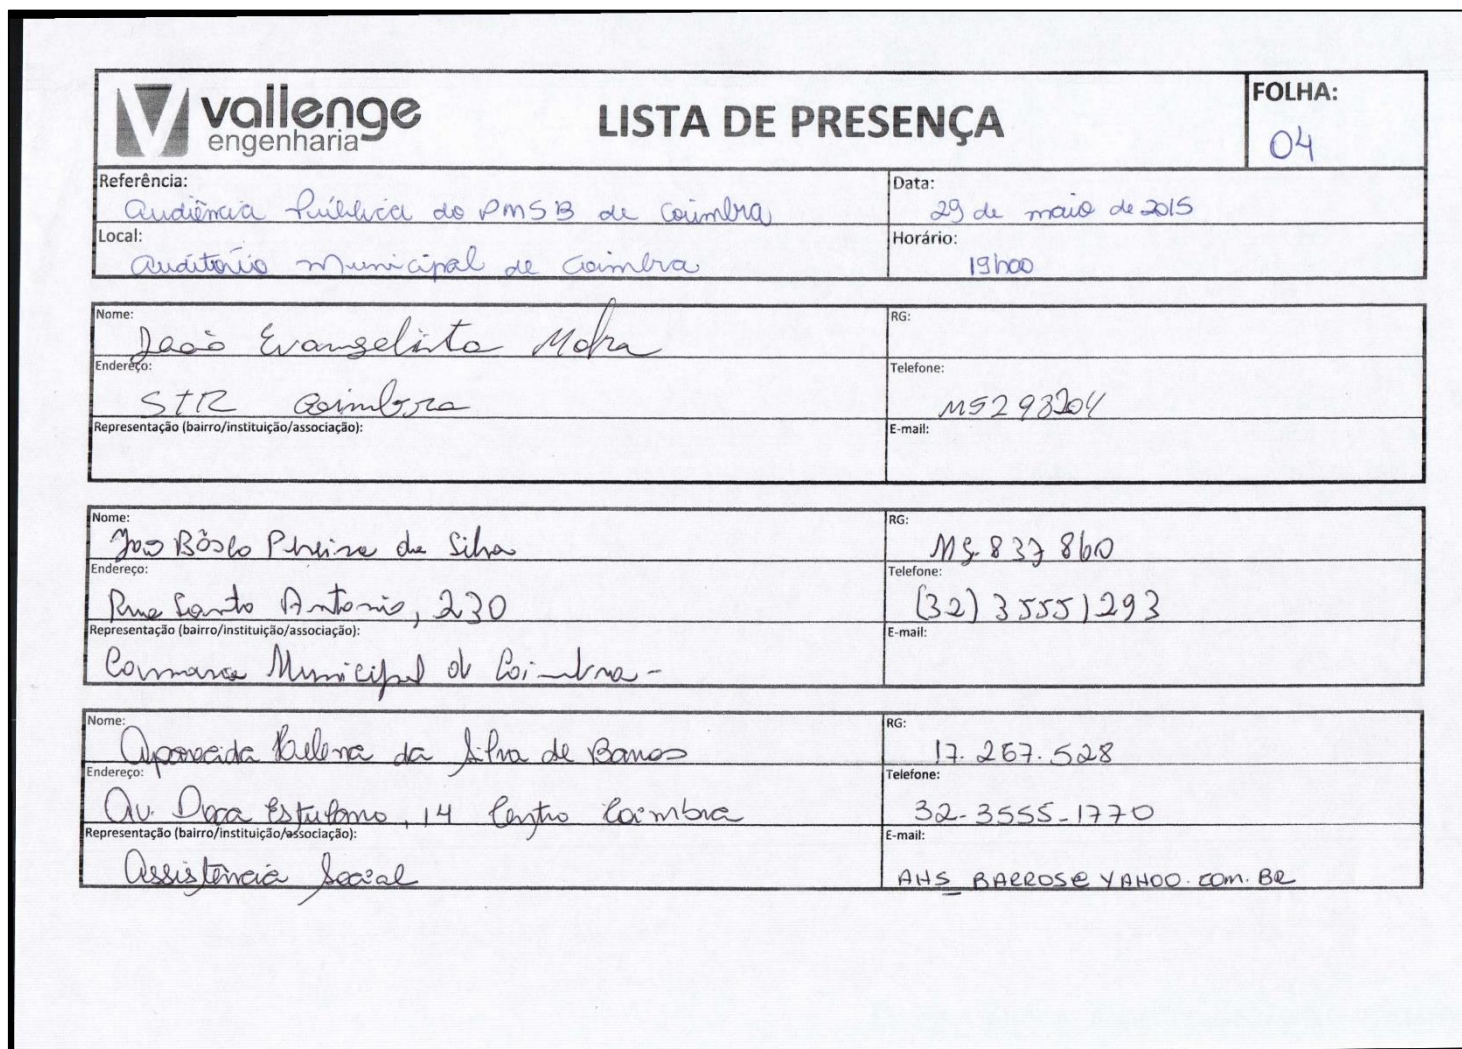 vallenge
engenharia
LISTA DE PRESENÇA
FOLHA:
04
Referência:
Audiência Pública do PMSB de Coimbra
Data:
29 de maio de 2015
Local:
Auditório Municipal de Coimbra
Horário:
19h00
Nome:
João Evangelista
RG:
Endereço:
STR Coimbra
Telefone:
M5293204
Representação (bairro/instituição/associação):
E-mail:
Nome:
João Bôsco Pereira da Silva
RG:
MG 837 860
Endereço:
Rua Santo Antonio, 230
Telefone:
(32) 35551293
Representação (bairro/instituição/associação):
Camara Municipal de Coimbra -
E-mail:
Nome:
Aparecida Helena da Silva de Barros
RG:
17.267.528
Endereço:
Av. 14 Centro Coimbra
Telefone:
32-3555-1770
Representação (bairro/instituição/associação):
Assistência Social
E-mail:
AHS_BARROS@YAHOO.COM.BR